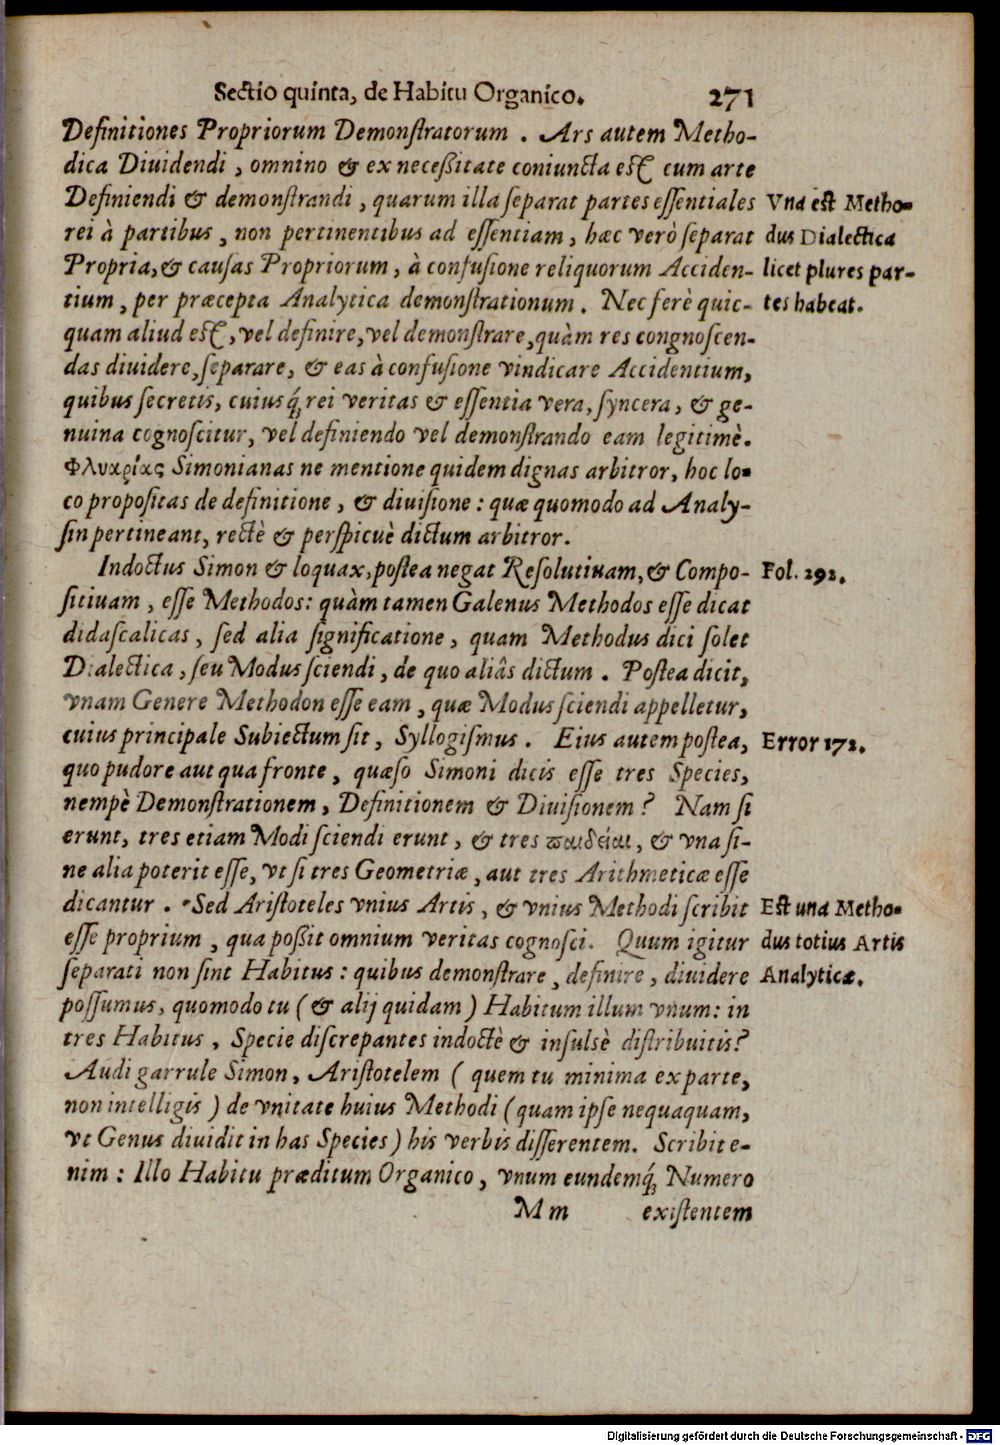 Sectio quinta, de Habitu Organico. 271
Definitiones Propriorum Demonſtratorum . Ars autem Metho-
dica Diuidendi, omnino & ex neceßitate coniuncta eſt cum arte
Definiendi & demonſtrandi, quarum illa ſeparat partes eſſentiales
Vna est Metho-
rei à partibus, non pertinentibus ad eſſentiam, hæc verò ſeparat
dus Dialectica
Propria, & cauſas Propriorum, à confuſione reliquorum Acciden-
licet plures par-
tium, per præcepta Analytica demonſtrationum. Nec ferè quic-
tes habeat.
quam aliud eſt, vel definire, vel demonſtrare, quàm res congnoſcen-
das diuidere, ſeparare, & eas à confuſione vindicare Accidentium,
quibus ſecretis, cuiusq́; rei veritas & eſſentia vera, ſyncera, & ge-
nuina cognoſcitur, vel definiendo vel demonſtrando eam legitimè.
Φλυαρίας Simonianas ne mentione quidem dignas arbitror, hoc lo-
co propoſitas de definitione, & diuiſione: quæ quomodo ad Analy-
ſin pertineant, rectè & perſpicuè dictum arbitror.
Indoctus Simon & loquax, poſtea negat Reſolutiuam, & Compo-
Fol. 292.
ſitiuam, eſſe Methodos: quàm tamen Galenus Methodos eſſe dicat
didaſcalicas, ſed alia ſignificatione, quam Methodus dici ſolet
Dialectica, ſeu Modus ſciendi, de quo aliâs dictum. Poſtea dicit,
vnam Genere Methodon eſſe eam, quæ Modus ſciendi appelletur,
cuius principale Subiectum ſit, Syllogiſmus. Eius autem poſtea,
Error 172.
quo pudore aut qua fronte, quæſo Simoni dicis eſſe tres Species,
nempè Demonſtrationem, Definitionem & Diuiſionem? Nam ſi
erunt, tres etiam Modi ſciendi erunt, & tres παιδείαι, & vna ſi-
ne alia poterit eſſe, vt ſi tres Geometriæ, aut tres Arithmeticæ eſſe
dicantur. Sed Ariſtoteles vnius Artis, & vnius Methodi ſcribit
Est una Metho-
eſſe proprium, qua poßit omnium veritas cognoſci. Quum igitur
dus totius Artis
ſeparati non ſint Habitus: quibus demonſtrare, definire, diuidere
Analyticæ.
poſſumus, quomodo tu (& alij quidam) Habitum illum vnum: in
tres Habitus, Specie diſcrepantes indoctè & inſulsè diſtribuitis?
Audi garrule Simon, Ariſtotelem (quem tu minima ex parte,
non intelligis) de vnitate huius Methodi (quam ipſe nequaquam,
vt Genus diuidit in has Species) his verbis diſſerentem. Scribit e-
nim: Illo Habitu præditum Organico, vnum eundemq́; Numero
Mm existentem
Digitalisierung gefördert durch die Deutsche Forschungsgemeinschaft - DFG